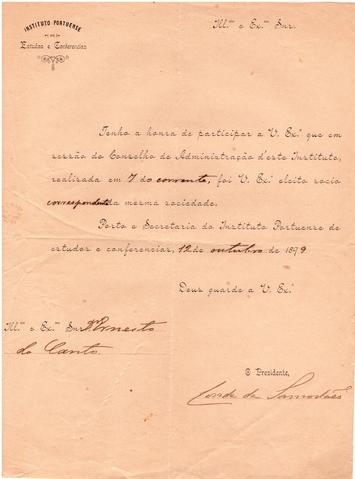 INSTITUTO PORTUENSE
DE
Estudos e Conferencias
Ill.mo e Ex.mo Snr.
Tenho a honra de participar a V. Ex.a que em
sessão do Conselho de Administração d'este Instituto,
realisada em 7 do corrente, foi V. Ex.a eleito socio
correspondente da mesma sociedade.
Porto e Secretaria do Instituto Portuense de
estudos e conferencias, 12 de outubro de 1899.
Deus guarde a V. Ex.a
Ill.mo e Ex.mo Snr. Ernesto
do Canto.
O Presidente,
Conde de Samodães